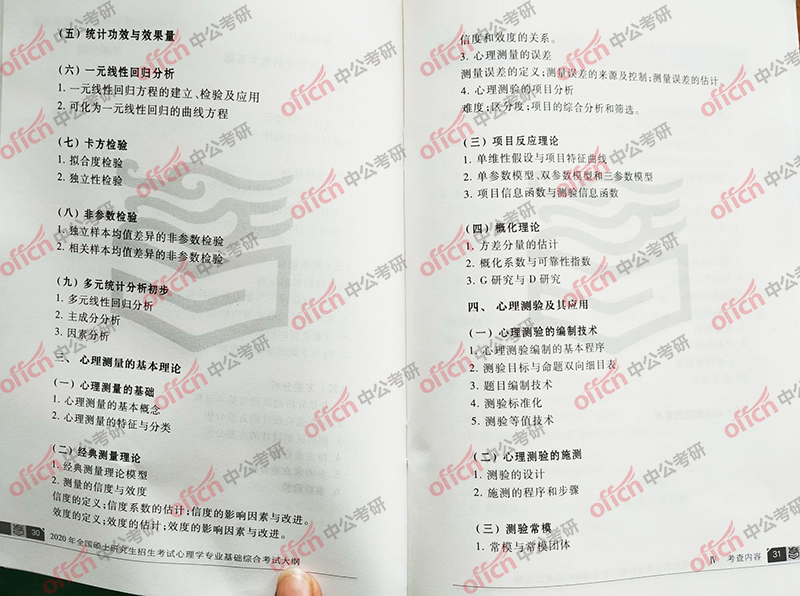 （五）统计功效与效果量
（六）一元线性回归分析
1. 一元线性回归方程的建立、检验及应用
2. 可化为一元线性回归的曲线方程
（七）卡方检验
1. 拟合度检验
2. 独立性检验
（八）非参数检验
1. 独立样本均值差异的非参数检验
2. 相关样本均值差异的非参数检验
（九）多元统计分析初步
1. 多元线性回归分析
2. 主成分分析
3. 因素分析
三、心理测量的基本理论
（一）心理测量的基础
1. 心理测量的基本概念
2. 心理测量的特征与分类
（二）经典测量理论
1. 经典测量理论模型
2. 测量的信度与效度
信度的定义；信度系数的估计；信度的影响因素与改进。
效度的定义；效度的估计；效度的影响因素与改进。
30 2020年全国硕士研究生招生考试心理学专业基础综合考试大纲
信度和效度的关系。
3. 心理测量的误差
测量误差的定义；测量误差的来源及控制；测量误差的估计
4. 心理测验的项目分析
难度；区分度；项目的综合分析和筛选。
（三）项目反应理论
1. 单维性假设与项目特征曲线
2. 单参数模型、双参数模型和三参数模型
3. 项目信息函数与测验信息函数
（四）概化理论
1. 方差分量的估计
2. 概化系数与可靠性指数
3. G研究与D研究
四、心理测验及其应用
（一）心理测验的编制技术
1. 心理测验编制的基本程序
2. 测验目标与命题双向细目表
3. 题目编制技术
4. 测验标准化
5. 测验等值技术
（二）心理测验的施测
1. 测验的设计
2. 施测的程序和步骤
（三）测验常模
1. 常模与常模团体
Ⅳ 考查内容 31
offcn 中公考研